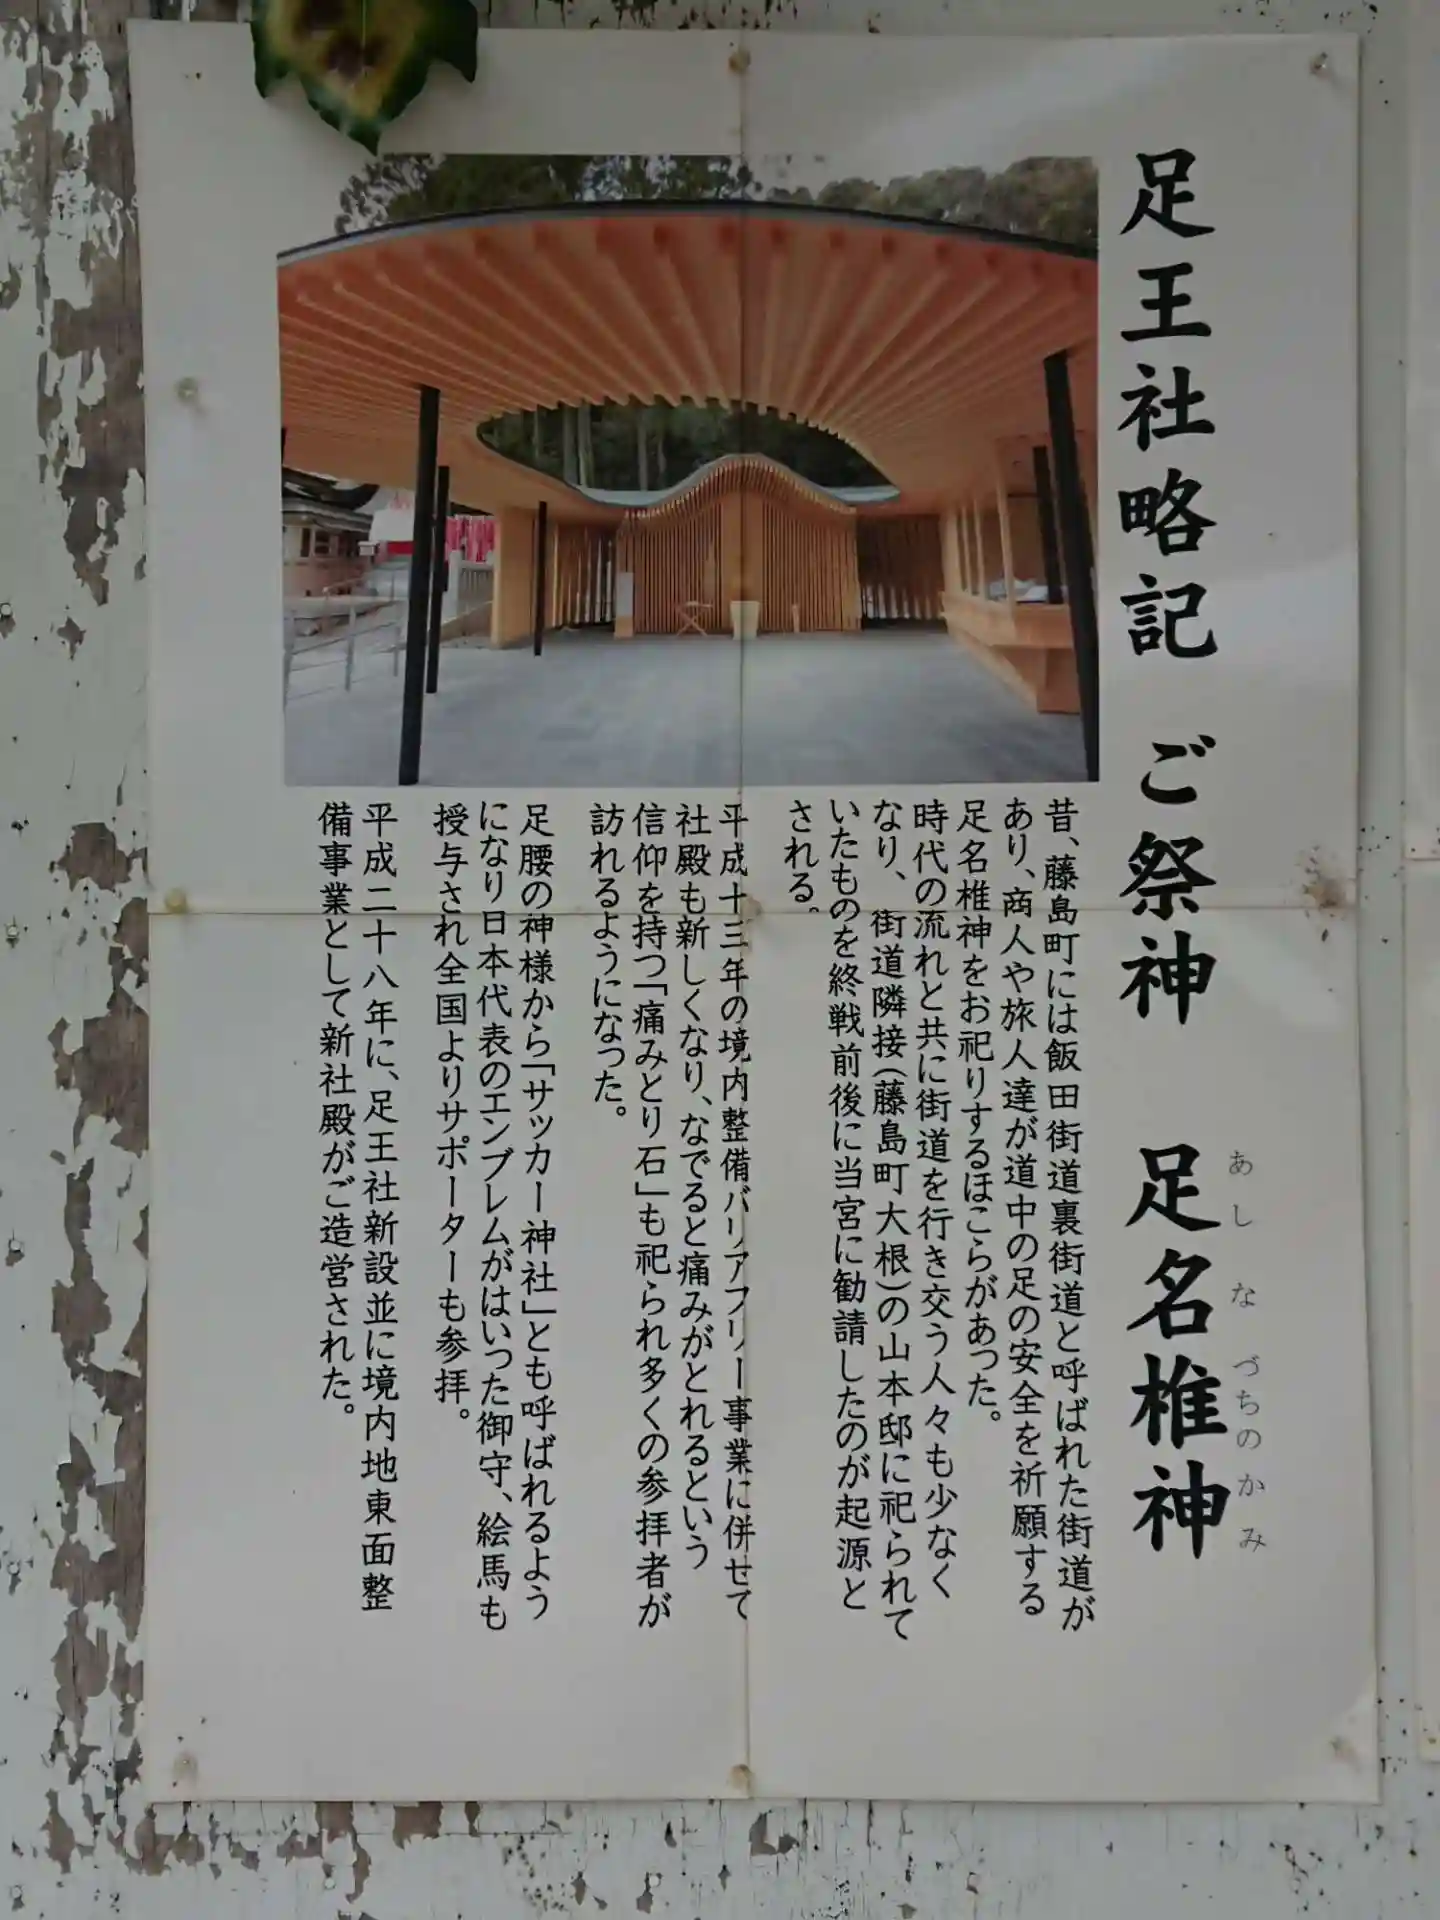 足王社略記 ご祭神 足名椎神
あしなづちのかみ
昔、藤島町には飯田街道裏街道と呼ばれた街道が
あり、商人や旅人達が道中の足の安全を祈願する
足名椎神をお祀りするほこらがあった。
時代の流れと共に街道を行き交う人々も少なく
なり、街道隣接(藤島町大根)の山本邸に祀られて
いたものを終戦前後に当宮に勧請したのが起源と
される。
平成十三年の境内整備バリアフリー事業に併せて
社殿も新しくなり、なでると痛みがとれるという
信仰を持つ「痛みとり石」も祀られ多くの参拝者が
訪れるようになった。
足腰の神様から「サッカー神社」とも呼ばれるよう
になり日本代表のエンブレムがはいった御守、絵馬も
授与され全国よりサポーターも参拝。
平成二十八年に、足王社新設並に境内地東面整
備事業として新社殿がご造営された。